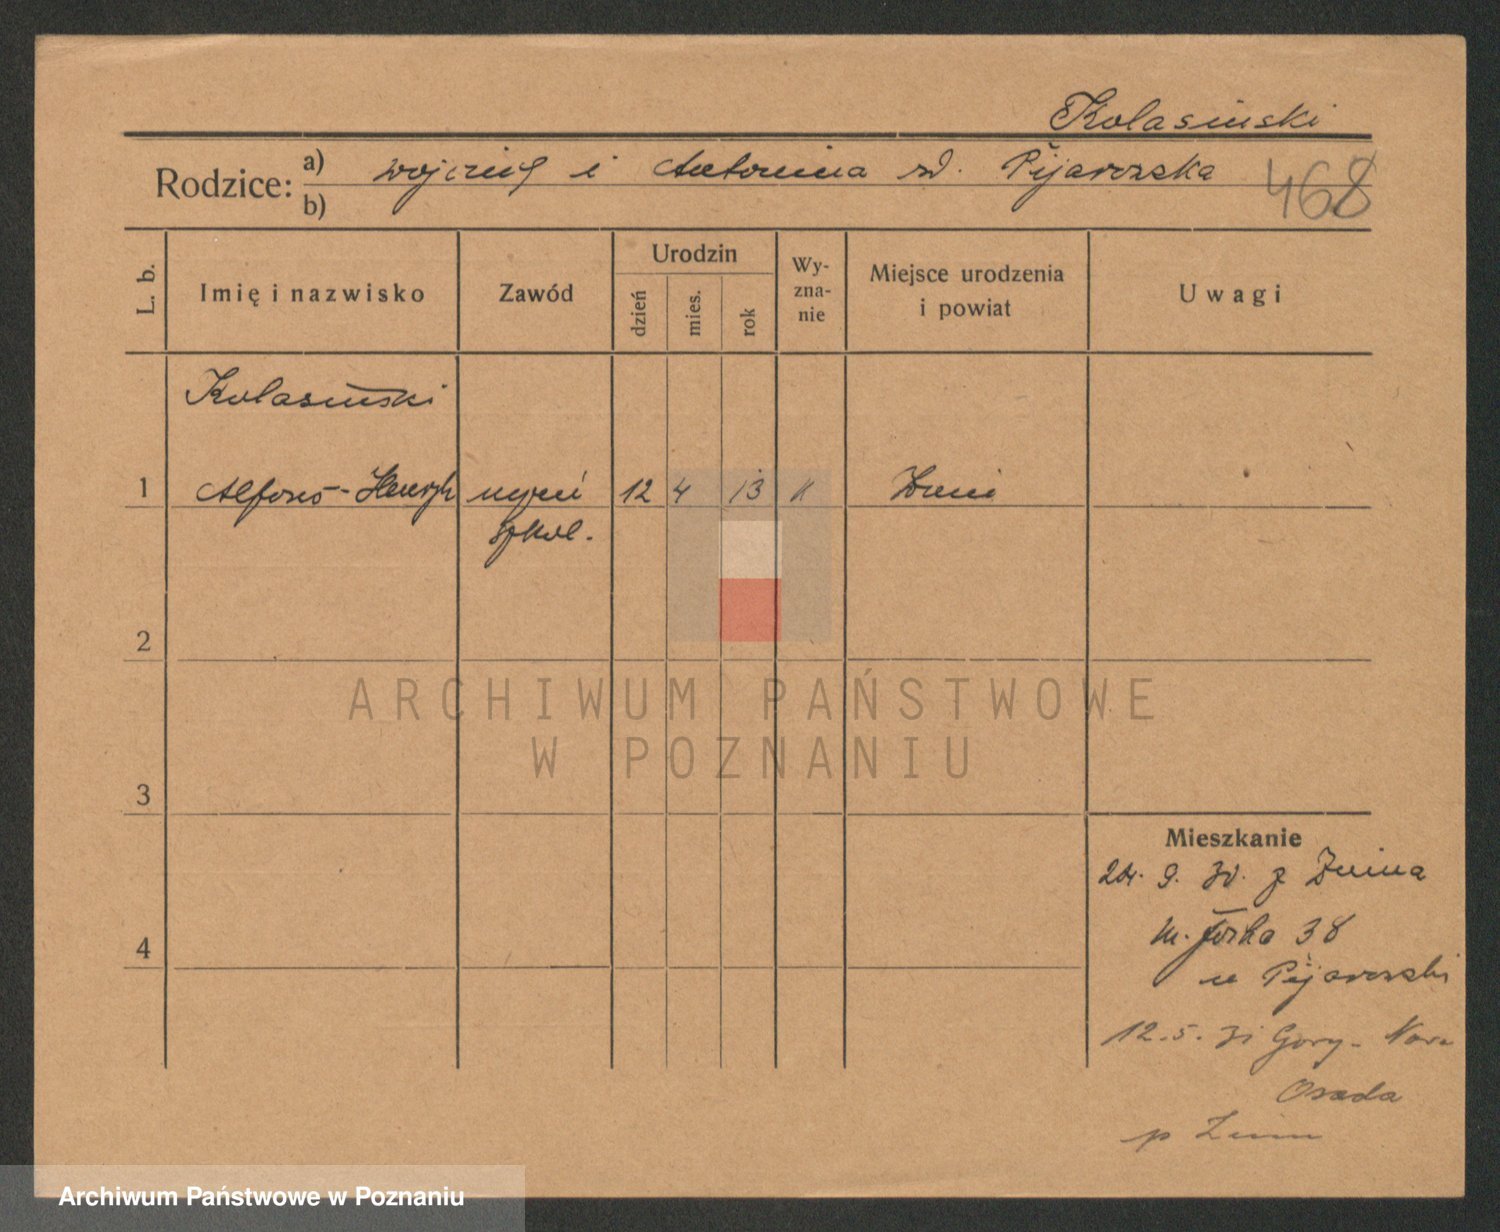 Kolasinski
Rodzice: a) Wojciech i Antonina zd. Pijarczska
b)
468
L. b.
Imię i nazwisko
Zawód
Urodzin
dzień
mies.
rok
Wy-
zna-
nie
Miejsce urodzenia
i powiat
Uwagi
Kolasiński
1 Alfons-Henryk uczeń 12 4 13 K Żnin
szkol.
2
3
4
ARCHIWUM PAŃSTWOWE
W POZNANIU
Mieszkanie
24. 9. 30. z Żnina
38
u Pijarczski
12.5.31 Góry-Nowa
Osada
p Żnin
Archiwum Państwowe w Poznaniu